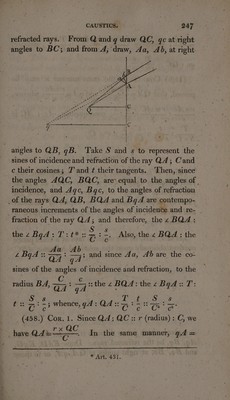 CAUSTICS. 247
refracted rays. From Q and q draw QC, qc at right
angles to BC; and from A, draw, Aa, Ab, at right
angles to QB, qB. Take S and s to represent the
sines of incidence and refraction of the ray QA; C and
c their cosines; T and t their tangents. Then, since
the angles AQC, BQC, are equal to the angles of
incidence, and Aqc, Bqc, to the angles of refraction
of the rays QA, QB, BQA and BqA are contempo-
raneous increments of the angles of incidence and re-
fraction of the ray QA; and therefore, the ∠ BQA :
the ∠ BqA : T : t* :: S/C : s/c. Also, the ∠ BQA : the
∠ BqA :: Aa/QA : Ab/qA; and since Aa, Ab are the co-
sines of the angles of incidence and refraction, to the
radius BA, C/QA : c/qA :: the ∠ BQA : the ∠ BqA :: T :
t :: S/C : s/c; whence, qA : QA :: T/C : t/c :: S/C² : s/c².
(458.) COR. 1. Since QA : QC :: r (radius) : C, we
have QA = r × QC/C. In the same manner, qA =
* Art. 431.